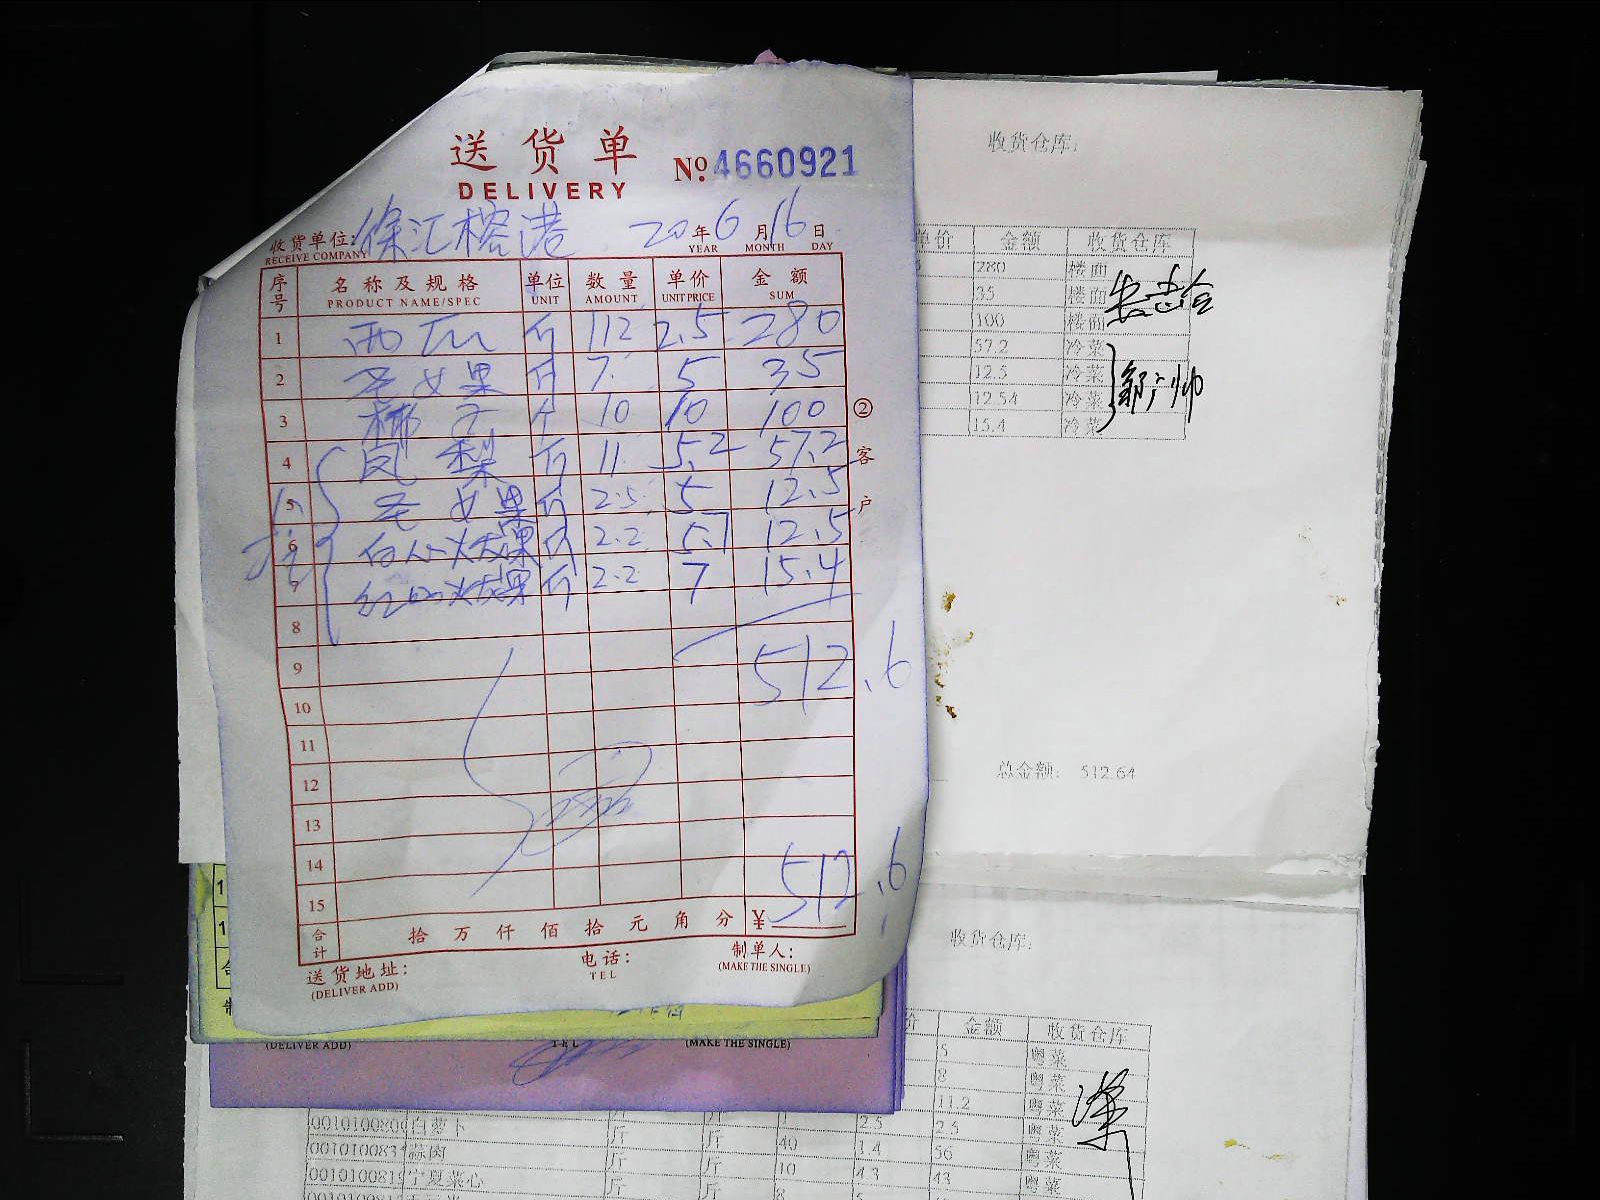 送货单
DELIVERY
№ 4660921
收货单位: 徐汇榕港 20年6月16日
RECEIVE COMPANY YEAR MONTH DAY
序号 名称及规格 单位 数量 单价 金额
PRODUCT NAME/SPEC UNIT AMOUNT UNIT PRICE SUM
1 西瓜 斤 112 2.5 280
2 圣女果 斤 7 5 35
3 椰子 个 10 10 100
4 凤梨 斤 11 5.2 57.2
5 圣女果 斤 2.5 5 12.5
6 白心火龙果 斤 2.2 5.7 12.5
7 红心火龙果 斤 2.2 7 15.4
8
9 512.6
10
11
12
13
14
15 512.6
合计 拾 万 仟 佰 拾 元 角 分 ¥
送货地址: 电话: 制单人:
(DELIVER ADD) TEL (MAKE THE SINGLE)
② 客户
收货仓库:
单价 金额 收货仓库
280 楼面
35 楼面
100 楼面
57.2 冷菜
12.5 冷菜
12.54 冷菜
15.4 冷菜
总金额: 512.64
(DELIVER ADD) TEL (MAKE THE SINGLE)
收货仓库:
价 金额 收货仓库
5 粤菜
8 粤菜
11.2 粤菜
白萝卜 斤 斤 1 2.5 2.5 粤菜
斤 斤 40 1.4 56 粤菜
宁夏菜心 斤 斤 10 4.3 43 粤菜